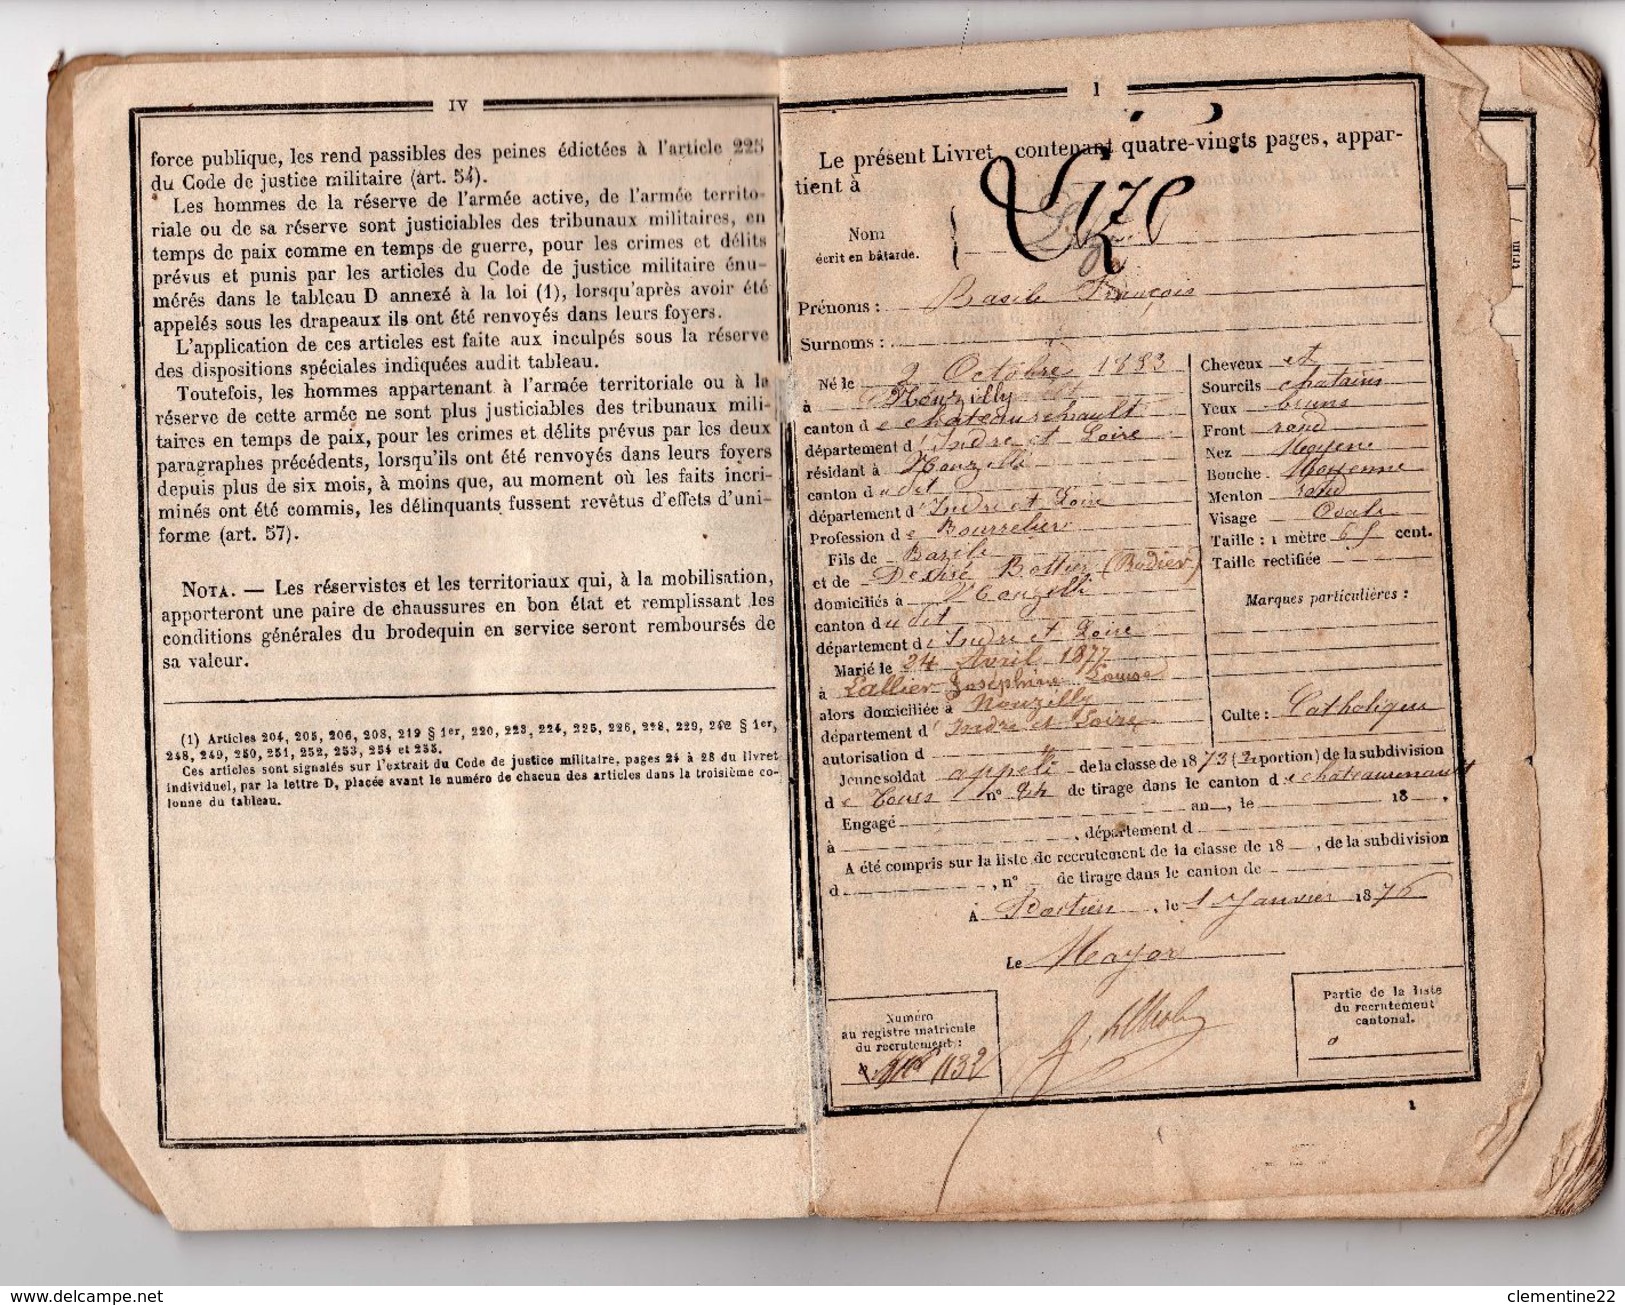 IV
force publique, les rend passibles des peines édictées à l'article 225
du Code de justice militaire (art. 54).
Les hommes de la réserve de l'armée active, de l'armée territo-
riale ou de sa réserve sont justiciables des tribunaux militaires, en
temps de paix comme en temps de guerre, pour les crimes et délits
prévus et punis par les articles du Code de justice militaire énu-
mérés dans le tableau D annexé à la loi (1), lorsqu'après avoir été
appelés sous les drapeaux ils ont été renvoyés dans leurs foyers.
L'application de ces articles est faite aux inculpés sous la réserve
des dispositions spéciales indiquées audit tableau.
Toutefois, les hommes appartenant à l'armée territoriale ou à la
réserve de cette armée ne sont plus justiciables des tribunaux mili-
taires en temps de paix, pour les crimes et délits prévus par les deux
paragraphes précédents, lorsqu'ils ont été renvoyés dans leurs foyers
depuis plus de six mois, à moins que, au moment où les faits incri-
minés ont été commis, les délinquants fussent revêtus d'effets d'uni-
forme (art. 57).
NOTA. — Les réservistes et les territoriaux qui, à la mobilisation,
apporteront une paire de chaussures en bon état et remplissant les
conditions générales du brodequin en service seront remboursés de
sa valeur.
(1) Articles 204, 205, 206, 208, 219 § 1er, 220, 223, 224, 225, 226, 228, 229, 242 § 1er,
248, 249, 250, 251, 252, 253, 254 et 255.
Ces articles sont signalés sur l'extrait du Code de justice militaire, pages 24 à 28 du livret
individuel, par la lettre D, placée avant le numéro de chacun des articles dans la troisième co-
lonne du tableau.
1
Le présent Livret, contenant quatre-vingts pages, appar-
tient à
Nom
écrit en bâtarde.
Prénoms : Basile François
Surnoms :
Né le 2 Octobre 1853
à Nouzilly
canton de chateaurenault
département d'Indre et Loire
résidant à Nouzilli
canton dudit
département d'Indre et Loire
Profession de Bourrelier
Fils de Basile
et de Désiré Bottier (Bodier)
domiciliés à Nouzilli
canton dudit
département d'Indre et Loire
Marié le 24 Avril 1877
à Lallier Joséphine Louise
alors domiciliée à Nouzilly
département d'Indre et Loire
autorisation d
Cheveux et
Sourcils chatains
Yeux bruns
Front rond
Nez Moyen
Bouche Moyenne
Menton rond
Visage Ovale
Taille : 1 mètre 65 cent.
Taille rectifiée
Marques particulières :
Culte : Catholique
Jeune soldat appelé de la classe de 1873 (2e portion) de la subdivision
de Tours n° 84 de tirage dans le canton de chateaurenault
Engagé an, le 18 ,
à , département d
A été compris sur la liste de recrutement de la classe de 18 , de la subdivision
d , n° de tirage dans le canton de
A Poitiers, le 1 Janvier 1876
Le Major
Numéro
au registre matricule
du recrutement :
1132
Partie de la liste
du recrutement
cantonal.
1
trim
clementine22